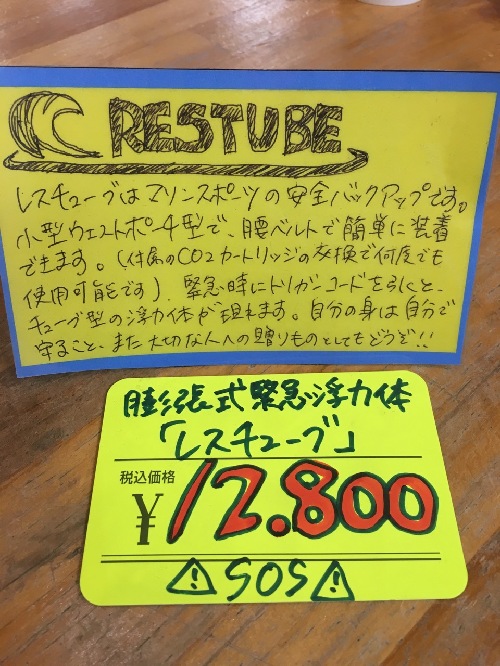 RESTUBE
レスチューブはマリンスポーツの安全バックアップです。
小型ウエストポーチ型で、腰ベルトで簡単に装着
できます。(付属のCO2カートリッジの交換で何度でも
使用可能です) 緊急時にトリガーコードを引くと、
チューブ型の浮力体が現れます。自分の身は自分で
守ること、また大切な人への贈りものとしてもどうぞ!!
膨張式緊急浮力体
「レスチューブ」
税込価格
¥12.800
SOS